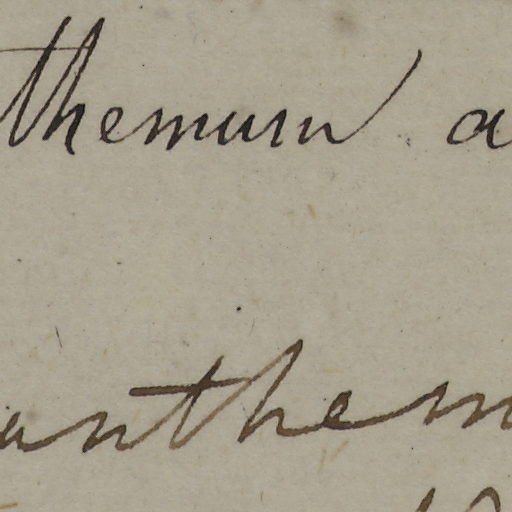 themum a
anthem